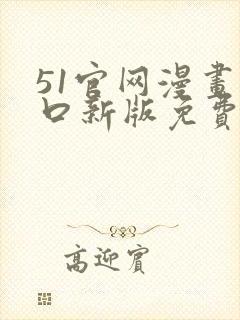 51官网漫畫
口新版免費
高迎賓